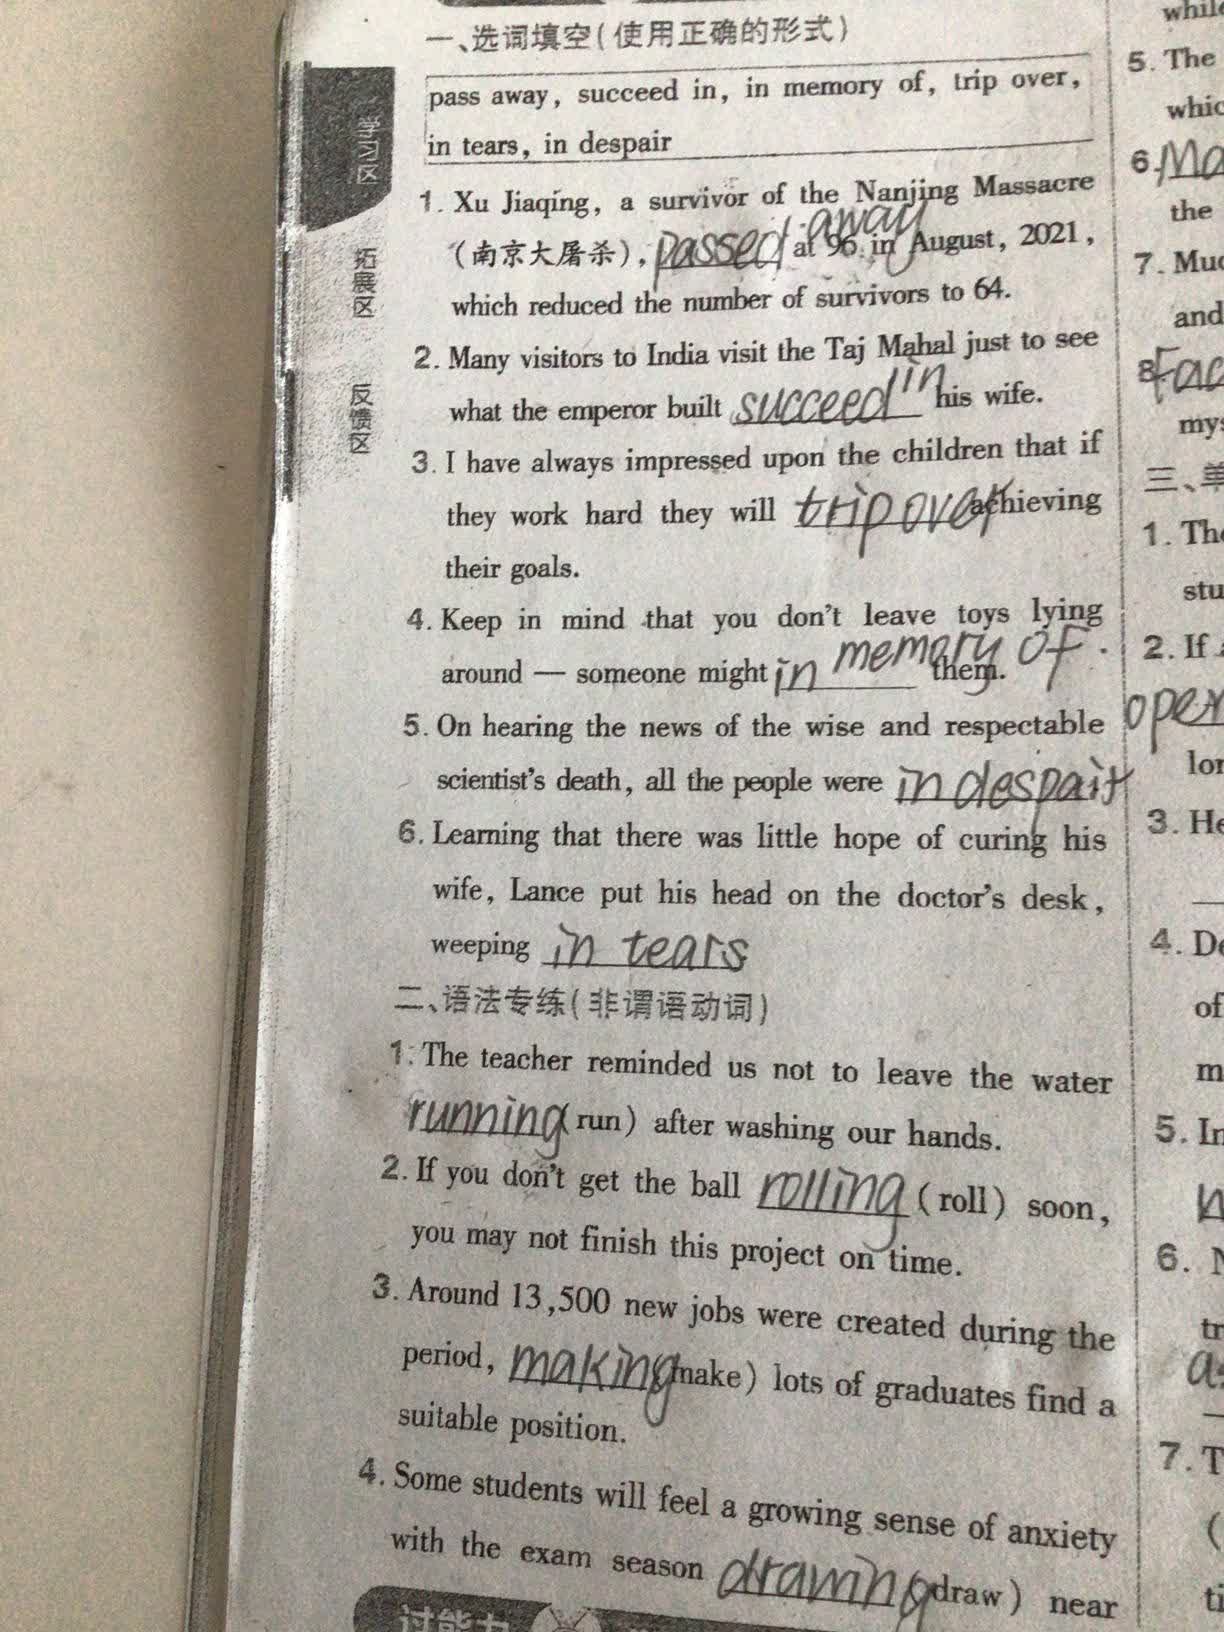 一、选词填空(使用正确的形式)
pass away, succeed in, in memory of, trip over,
in tears, in despair
学习区
拓展区
反馈区
1. Xu Jiaqing, a survivor of the Nanjing Massacre
(南京大屠杀), passed away at 96 in August, 2021,
which reduced the number of survivors to 64.
2. Many visitors to India visit the Taj Mahal just to see
what the emperor built succeed in his wife.
3. I have always impressed upon the children that if
they work hard they will trip over achieving
their goals.
4. Keep in mind that you don't leave toys lying
around — someone might in memory of them.
5. On hearing the news of the wise and respectable
scientist's death, all the people were in despair
6. Learning that there was little hope of curing his
wife, Lance put his head on the doctor's desk,
weeping in tears
二、语法专练(非谓语动词)
1. The teacher reminded us not to leave the water
running (run) after washing our hands.
2. If you don't get the ball rolling (roll) soon,
you may not finish this project on time.
3. Around 13,500 new jobs were created during the
period, making (make) lots of graduates find a
suitable position.
4. Some students will feel a growing sense of anxiety
with the exam season drawing (draw) near
5. The
6.
the
7.
and
8.
三、
1.
2. If
3. He
4.
of
5. In
6.
7.